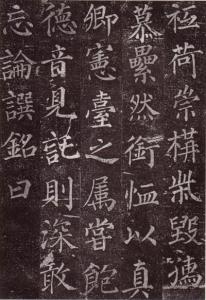 祗荷崇構柴毀孺
慕纍然銜恤以真
卿憲臺之屬嘗飽
德音見託則深敢
忘論譔銘曰